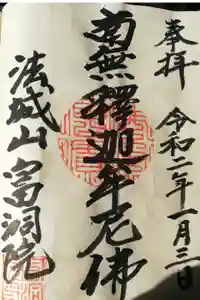 奉拝 令和二年一月三日
南無釋迦牟尼佛
法城山富洞院